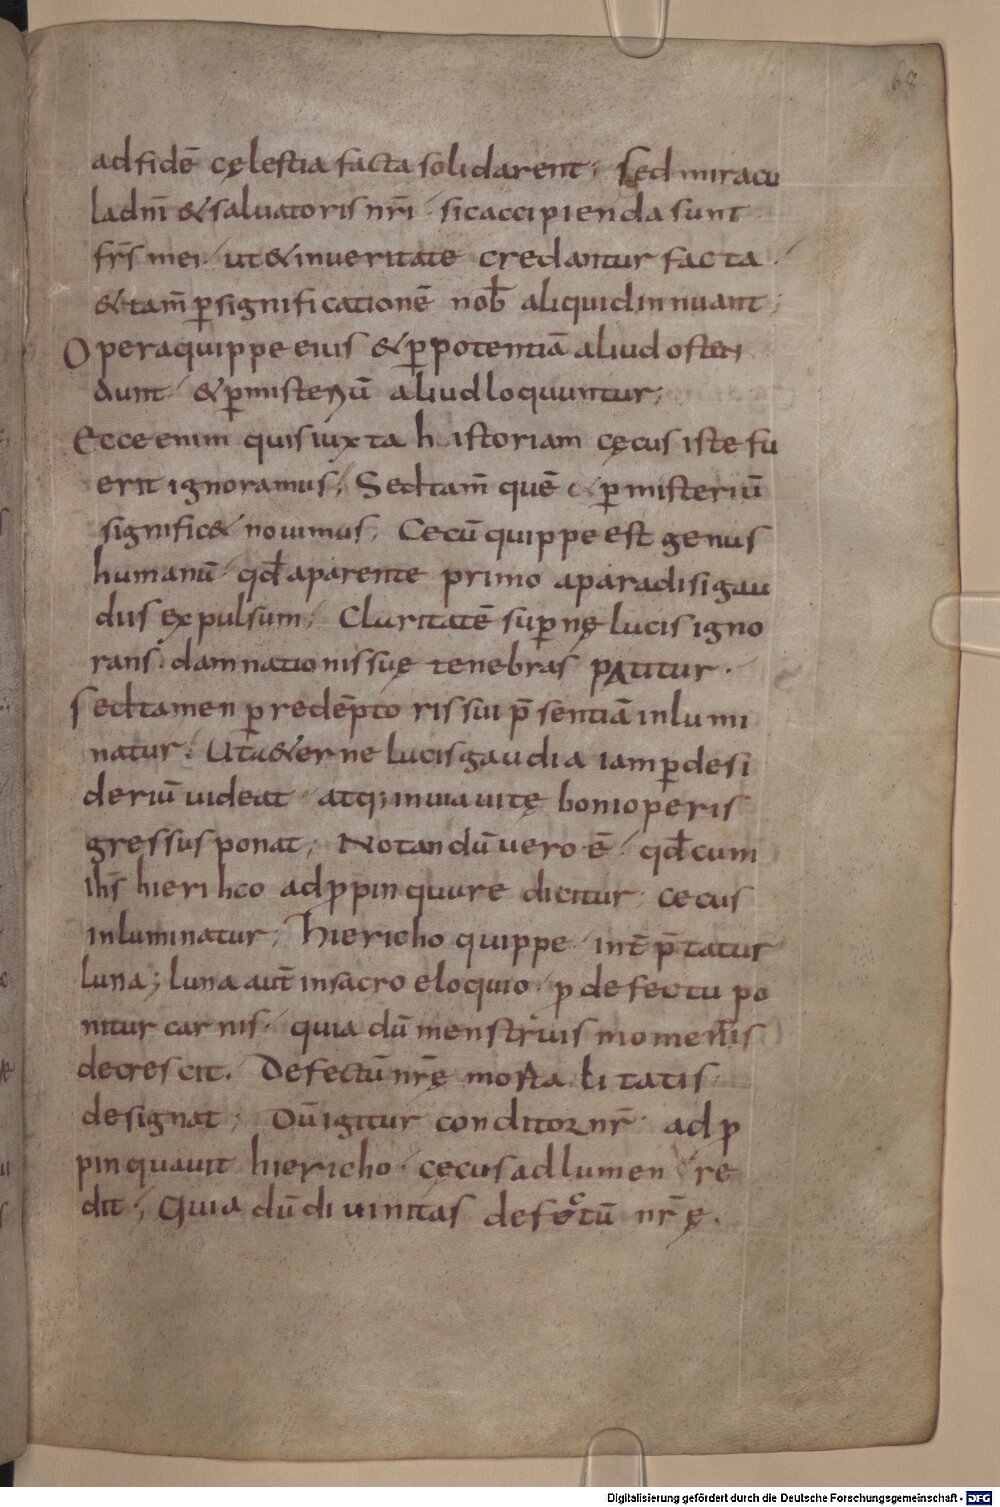 68
ad fidē cęlestia facta solidarent; Sed miracu
la dn̄i & saluatoris nr̄i sic accipienda sunt
fr̄s mei ut & in ueritate credantur facta.
& tam̄ ꝑ significationē nob̄ aliquid innuant;
Opera quippe eius & ꝑ potentiā aliud osten
dunt & ꝑ misteriū aliud loquuntur;
Ecce enim quis iuxta historiam cęcus iste fu
erit ignoramus; Sed tam̄ quē & ꝑ misterium
signific& nouimus; Cecū quippe est genus
humanū qd̄ a parente primo a paradisi gau
diis expulsum; Claritatē suꝑnę lucis igno
rans damnationis suę tenebras patitur.
sed tamen ꝑ redēptoris sui p̄sentiā inlumi
natur. Ut a&erne lucis gaudia iam ꝑ desi
deriū uideat atq; in uia uitę boni operis
gressus ponat; Notandū uero ē qd̄ cum
ih̄s hierihco adꝓpinquare dicitur cecus
inluminatur; hiericho quippe int̄p̄tatur
luna; luna aut̄ in sacro eloquio ꝓ defectu po
nitur carnis. quia dū menstruis momentis
decrescit. Defectū nr̄ę mortalitatis
designat; Dū igitur conditor nr̄ adꝓ
pinquauit hiericho cęcus ad lumen re
dit; Quia dū diuinitas defectū nr̄ę.
Digitalisierung gefördert durch die Deutsche Forschungsgemeinschaft - DFG